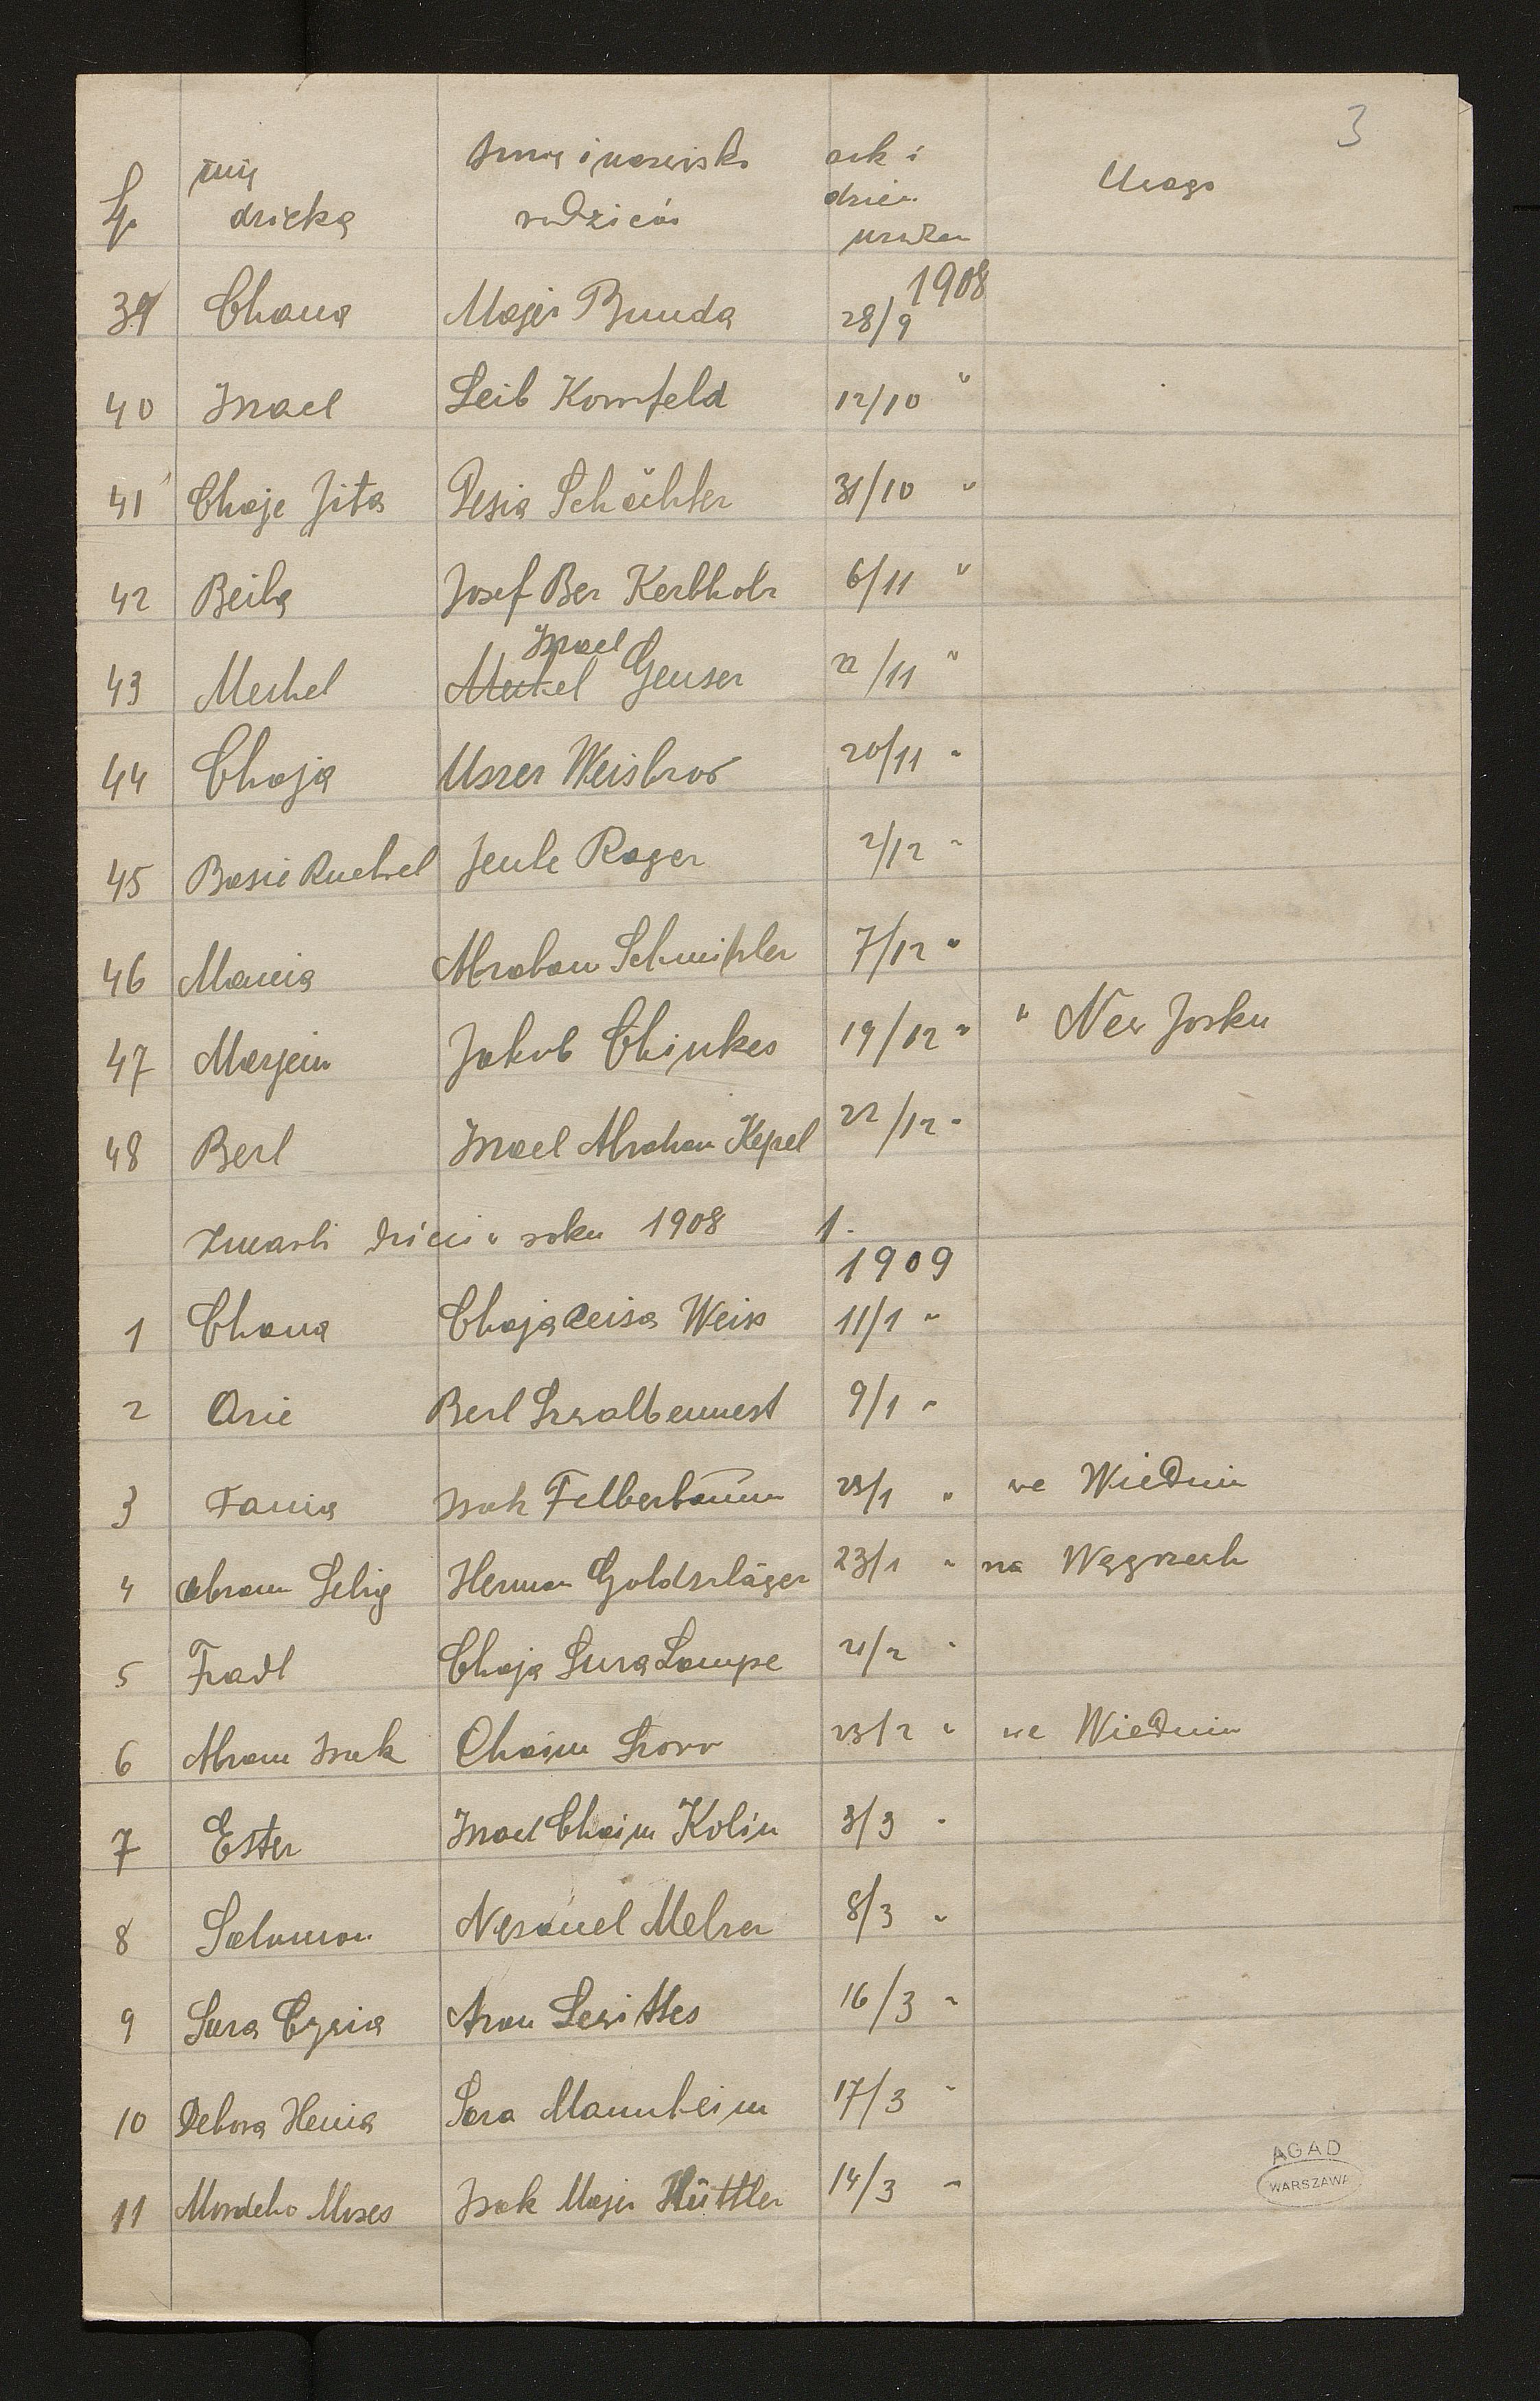 3
Lp imię dziecka Imię i nazwisko rodziców rok i dzień urodzen Uwaga
39 Chana Majer Bunda 28/9 1908
40 Izrael Leib Kornfeld 12/10 "
41 Chaje Jita Pesia Schächter 31/10 "
42 Beila Josef Ber Kerbholz 6/11 "
Izrael
43 Meshel Meshel Genser 22/11 "
44 Chaja Uszer Weisbrod 20/11 "
45 Basie Ruchel Jente Rager 2/12 "
46 Mania Abraham Schnitzler 7/12 "
47 Marjem Jakob Chinkes 19/12 " w New Jorku
48 Berl Izrael Abraham Kepel 22/12 "
Zmarli dzieci w roku 1908 1.
1909
1 Chana Chaja Leisa Weiss 11/1 "
2 Arie Berl Szwalbennest 9/1 "
3 Fania Isak Felberbaum 23/1 " we Wiedniu
4 Abram Selig Herman Goldschläger 23/1 " na Węgrzech
5 Fradl Chaja Sura Lampe 21/2 "
6 Abram Isak Chaim Szorr 23/2 " we Wiedniu
7 Ester Izrael Chaim Kolin 3/3 "
8 Salomon Nesanel Melzer 8/3 "
9 Sara Cywia Aron Lewittes 16/3 "
10 Debora Henia Sara Mannheim 17/3 "
11 Mordcho Moses Isak Majer Hüttler 14/3 "
AGAD
WARSZAWA